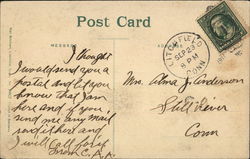 Post Card
MESSAGE
LITCHFIELD
SEP 23
8 PM
CONN
I thought
I would send you a
postal and let you
know that I am
here and if you
send me any mail
send it here and
I will call for it
from C.A.A.
Mrs. Alma J. Anderson
Still River
Conn